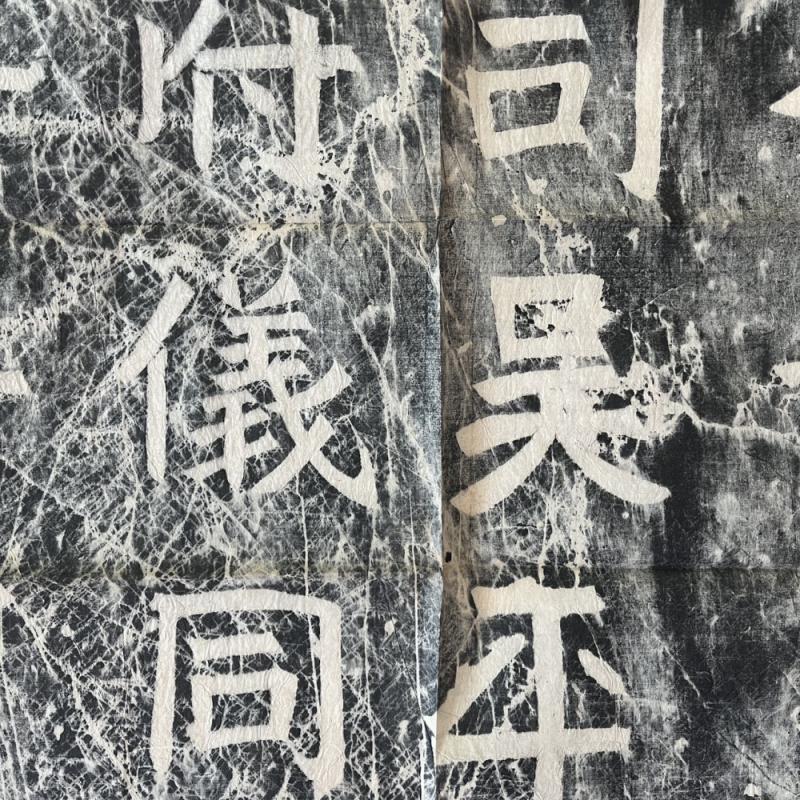 司吳平
府儀同